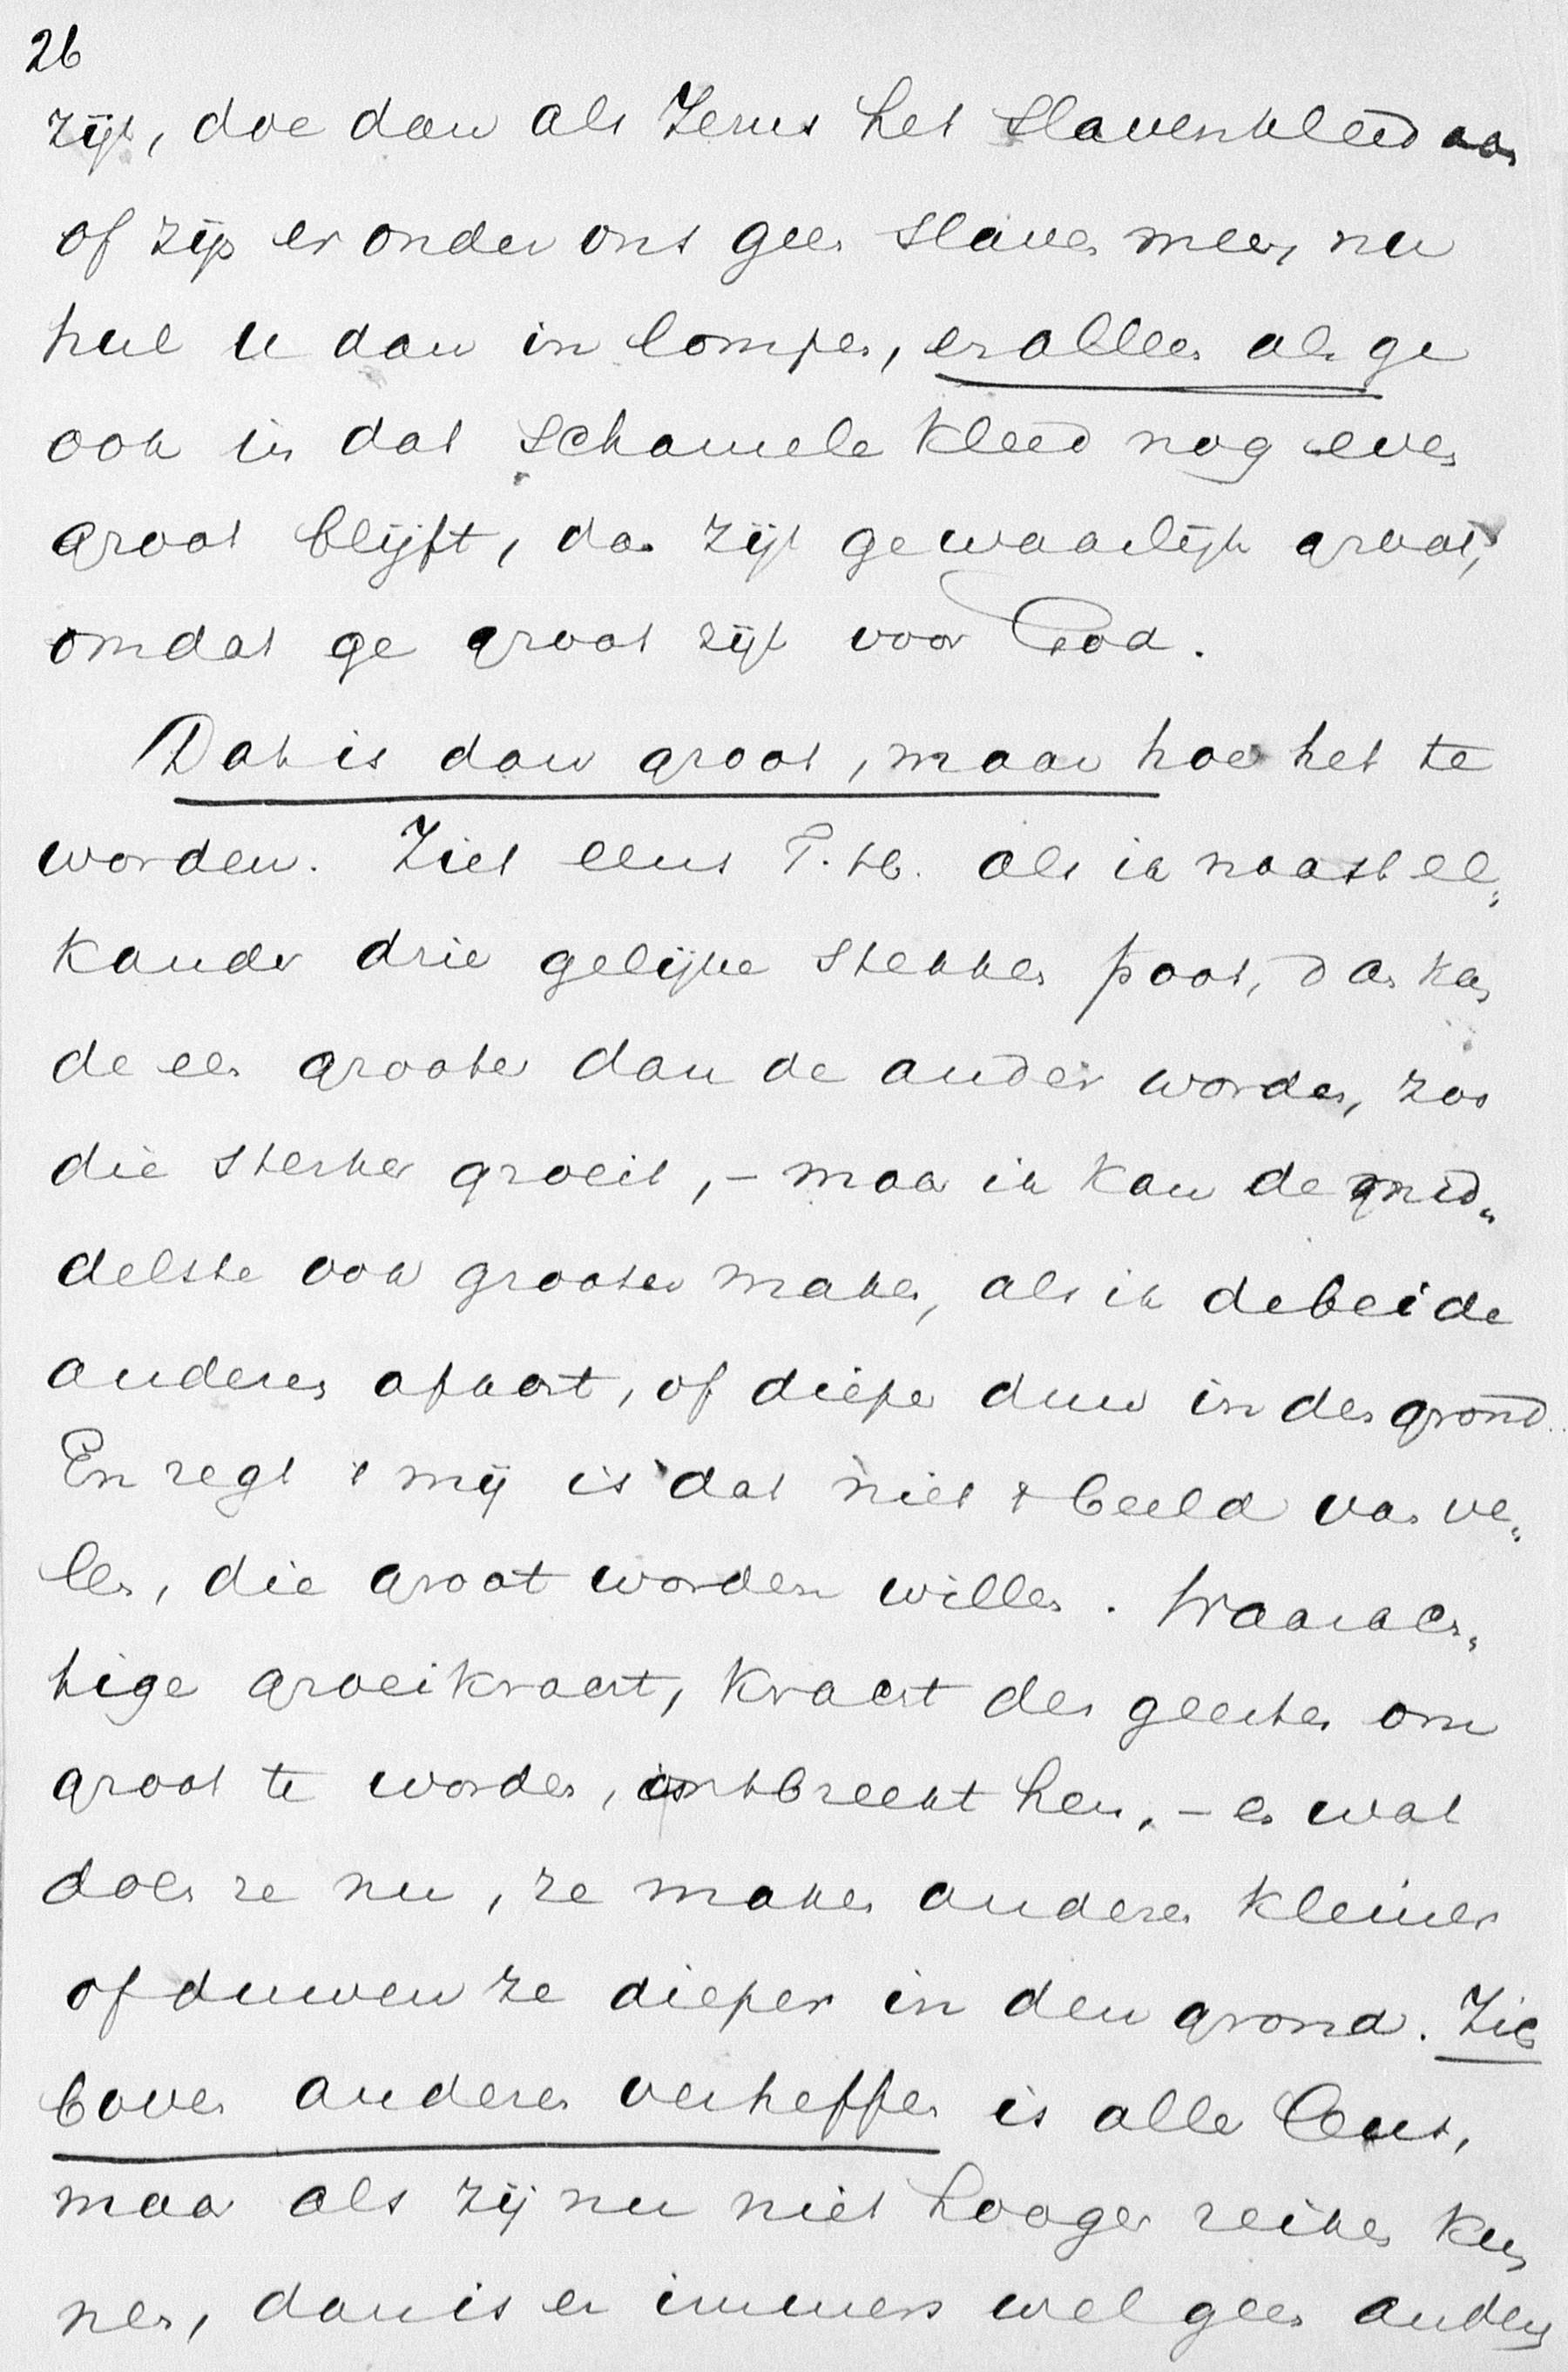 26
zijt, doe dan als Jezus het slavenkleed aan
of zijn er onder ons geen slaven meer, nu
hul u dan in lompen, en alleen als ge
ook in dat schamele kleed nog even
groot blijft, dan zijt ge waarlijk groot,
omdat ge groot zijt voor God.
Dat is dan groot, maar hoe het te
worden. Ziet eens T. H. als ik naast el„
kander drie gelijke stekken poot, dan kan
de een grooter dan de ander worden, zoo
die sterker groeit, – maar ik kan de mid„
delste ook grooter maken, als ik de beide
anderen afkort, of dieper duw in den grond.
En zegt 't mij is dat niet 't beeld van ve„
len, die groot worden willen. Waarach„
tige groeikracht, kracht des geestes om
groot te worden, ontbreekt hen, – en wat
doen ze nu, ze maken anderen kleiner
of duwen ze dieper in den grond. Zich
boven anderen verheffen is aller leus,
maar als zij nu niet hooger reiken kun
nen, dan is er immers wel geen anders